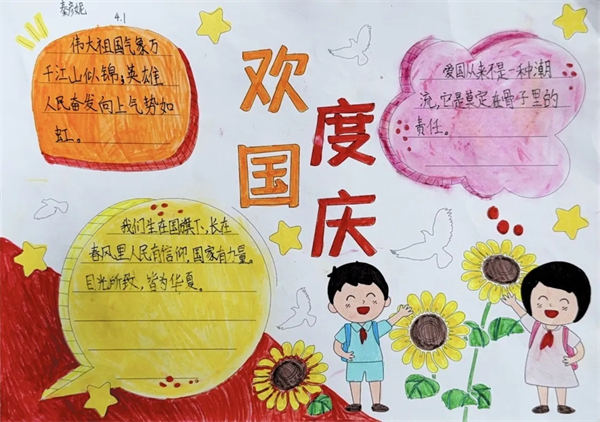 秦彦妮 4.1
伟大祖国气象万
千江山似锦；英雄
人民奋发向上气势如
虹。
欢度
国庆
爱国从来不是一种潮
流，它是莫定在骨子里的
责任。
我们生在国旗下，长在
春风里人民有信仰，国家有力量。
目光所致，皆为华夏。